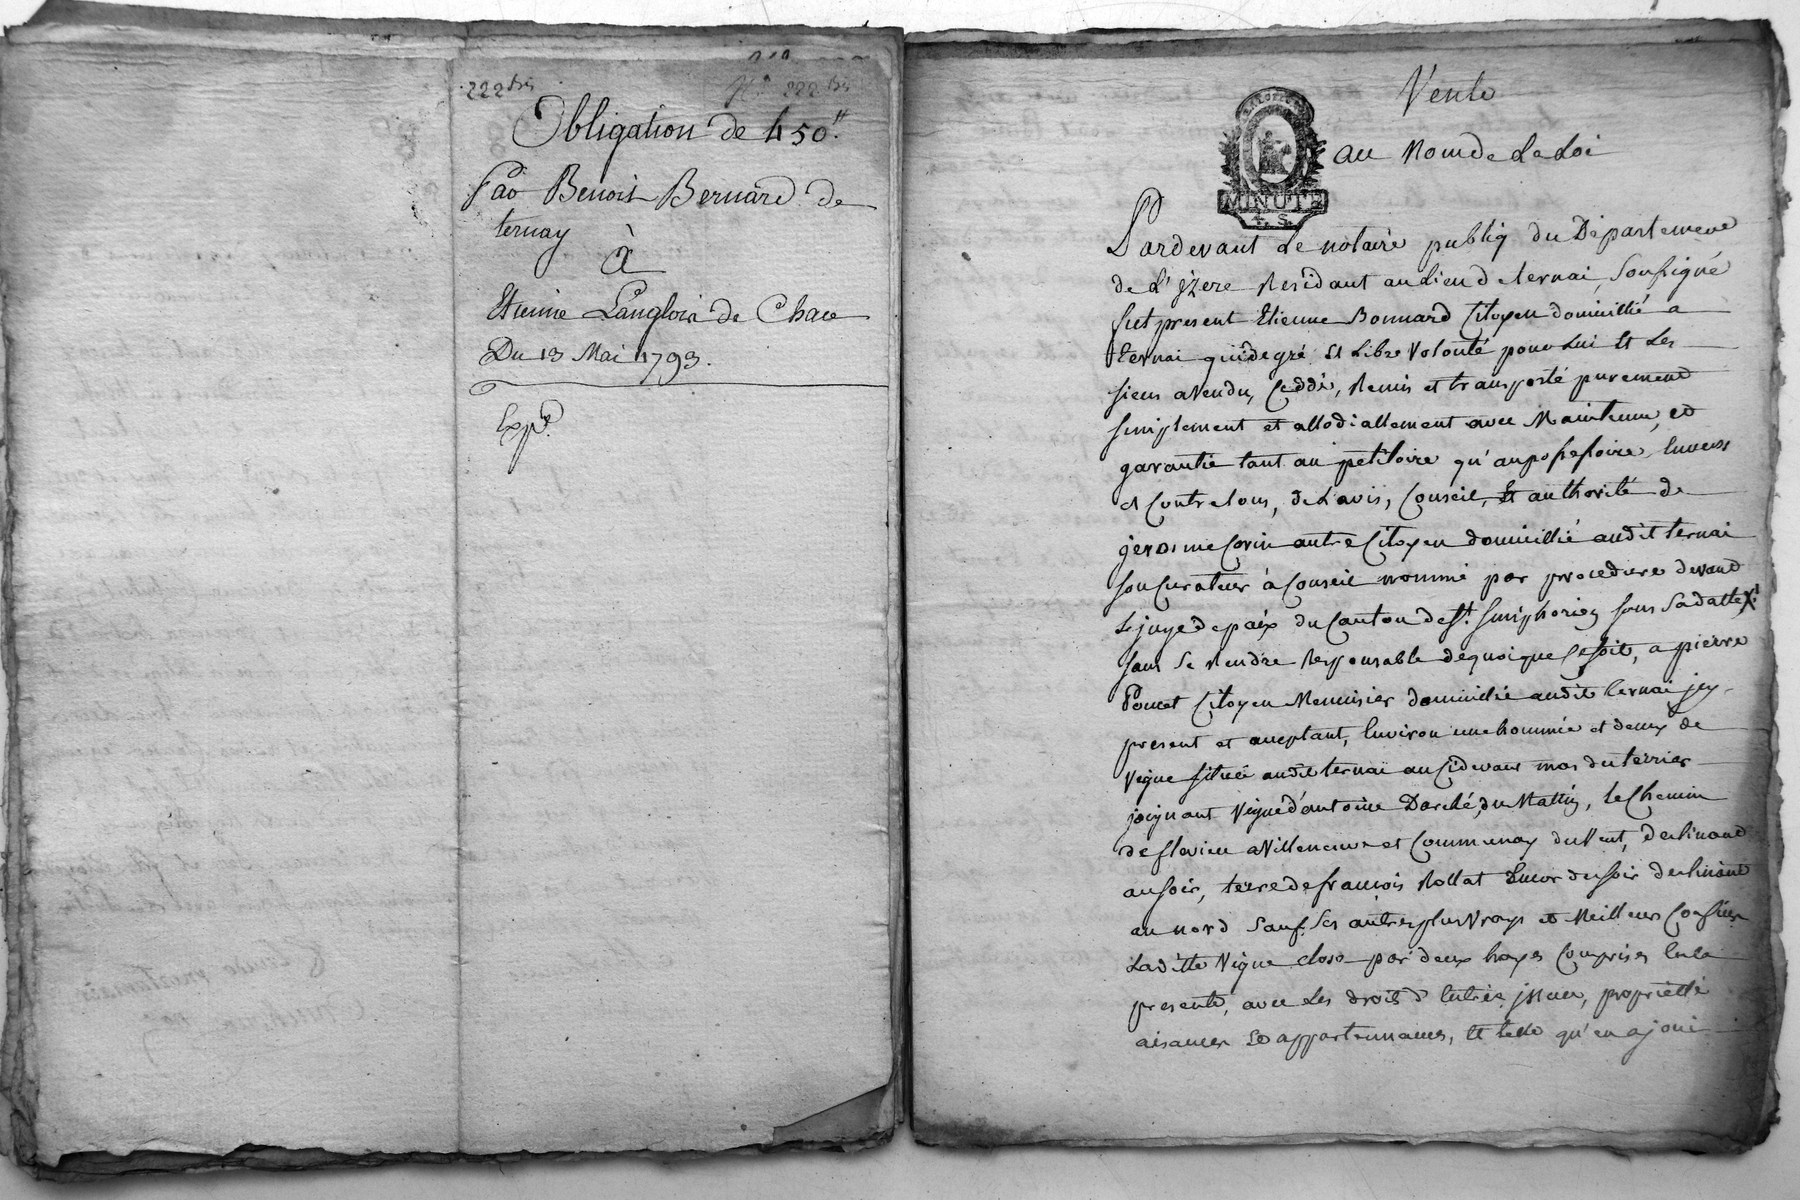 222 bis
N° 222 bis
Obligation de 450#.
Par Benoit Bernard de
ternay
à
Etienne Langlois de Chace
Du 13 Mai 1793.
Exp.é
Vente
MINUTE
4. S.
au Nom de La Loi
Pardevant Le notaire publiq du Departement
de L'jzere Residant au Lieu de ternai, Soussigné
fut present Etienne Bonnard Citoyen domicillié a
ternai qui de gré et Libre Volonté pour Lui et Les
siens a Vendu, Ceddé, Remis et transporté purement
simplement et allodiallement avec Maintenue, et
garantie tant au petitoire qu'au possessoire, Envers
et Contre tous, de L'avis, Conseil, Et authorité de
jerosme Corin autre Citoyen domicillié audit ternai
son Curateur à Conseil nommé par procedure devant
Le juge de paix du Canton de St. Simphorien sous Sa datte X
sans Se Rendre Responsable de quoique Ce soit, a pierre
Poncet Citoyen Menuisier domicillié audit ternai jcy
present et acceptant, Environ une hommée et demy de
Vigne située audit ternai au Cidevant mas du terrier
joignant Vigne d'antoine Darché, du Mattin, Le Chemin
de flevieu a Villeneuve et Communay du Vent, declinant
au soir, terre de françois Rollat Encor du soir declinant
au nord Sauf Ses autres plus Vrays et Meilleurs Confins
Laditte Vigne close par deux hayes Comprises En La
presente, avec Les droits d'Entrée, jssue, proprietté
aisances et appartennances, et telle qu'en a joui